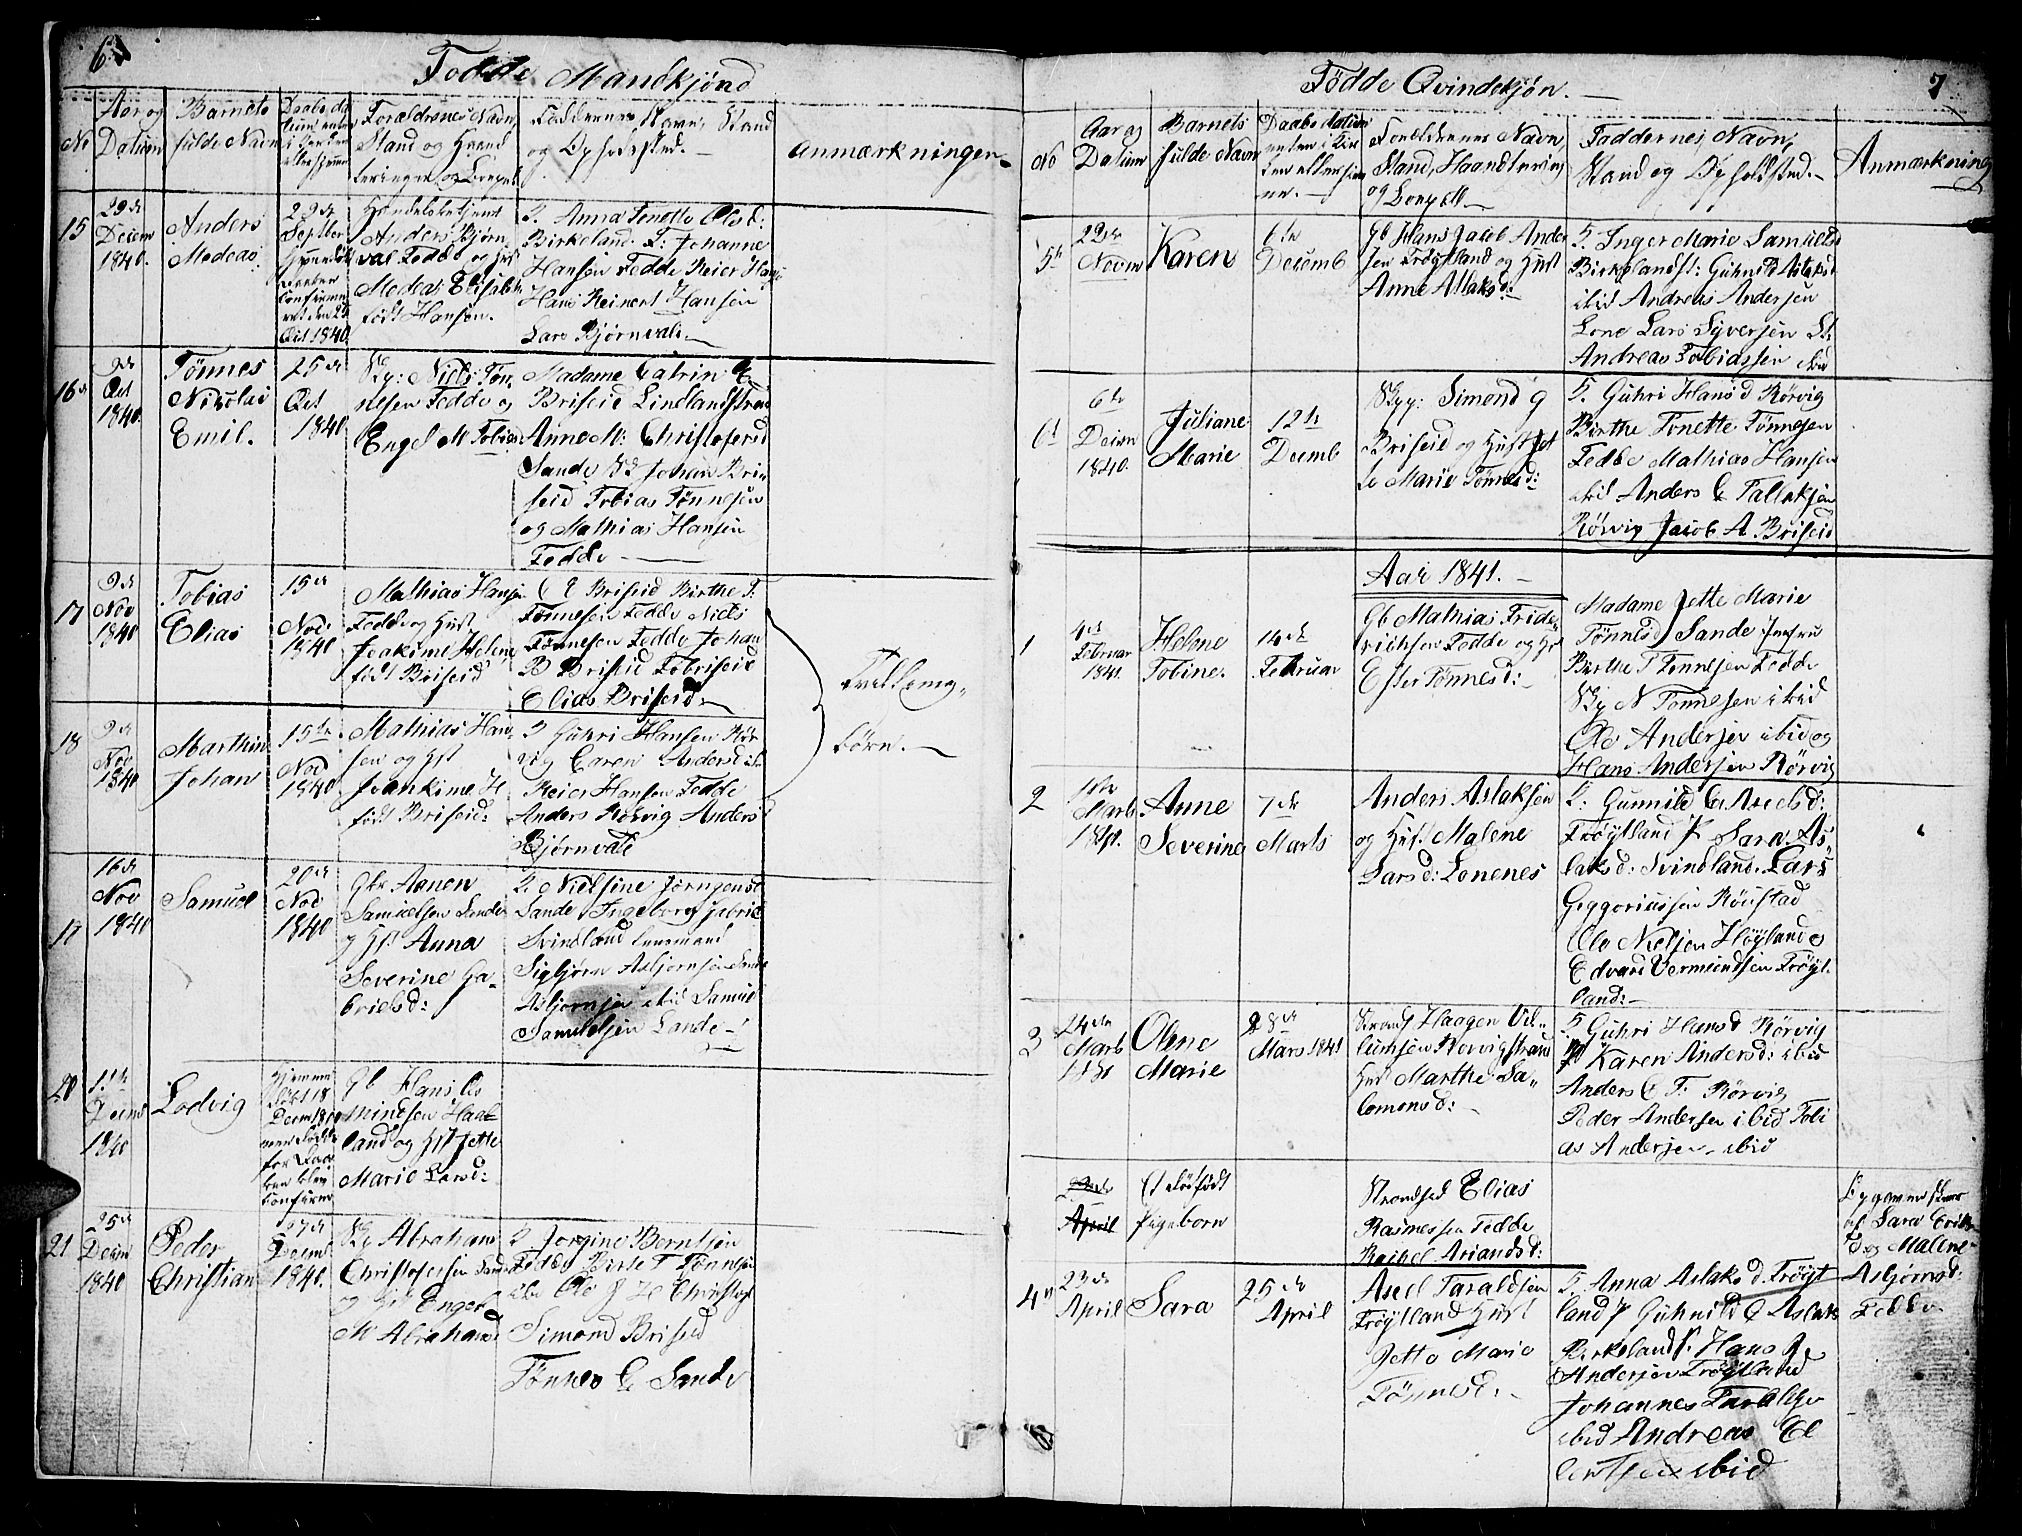 6
Fødde Mandkjønd
No
Aar og
Datum
Barnets
fulde Navn
Forældrenes Navn,
Stand og Haand
teringer og Bopæl
Faddernes Navn, Stand
og Opholdsted.
Anmærkninger
15
29de
1840.
Anders
Medeas
29de
Septber
Confirme
Oct 1840.
Handelsbetjent
Anders Bjørn
val Fedde og Hust
Medeas Elisabeth
født Hansen.
F. Anna Tonette Olsd:
Birkeland. F: Johanne
Hansen Fedde Reier Hansen
Hans Reinert Hansen
Lars Bjørnvale
16de
9de
Oct
1840.
Tønnes
Nikolai
Emil.
25de
Oct
1840
Niels Tøn
nesen Fedde og
Engel M Tobiasd
Madame Catrin E
Briseid Lindlandstrand
Anne M: Christofersd
Sande Johan Bri
seid Tobias Tønnesen
og Mathias Hansen
Fedde
17
9de
Nov
1840
Tobias
Elias
15de
Nov:
1840
Mathias Hansen
Fedde og Hust
Joakime Helene
født Briseid
C E Briseid Birthe T.
Tønnesen Fedde Niels
Tønnesen Fedde Johan
B Briseid
Elias Briseid
Tvillinge
børn.
18
9de
Nov
1840
Marthin
Johan
15de
Nov
1840
Mathias Han
sen og Hst
Joankime H
født Briseid:
F Guhri Hansen Rør
vig Caren Andersd
Reier Hansen Fedde
Anders Rørvig Anders
Bjørnvale
19
16de
Nov
1840
Samuel
20de
Nov
1840
Gbr Aanen
Samuelsen Sande
og Hst Anna
Severine Ga
brielsd:
F. Nielsine Jørngensd
Sande Ingeborg Gabrie
Svindland Lensmand
Sigbjørn Asbjørnsen Sande
Asbjørnsen ibid Samuel
Samuelsen Sande
20
11te
1840
Lodvig
Hjemme
døbt 18
Decem 1840
Gb Hans As
mundsen Haae
land og Hst Jette
Marie Larsd:
21
25de
Decem
1840
Peder
Christian
27de
Decemb
1840.
Abraham
Christofersen Sande
og Hst Engel
M Abrahamsd
F Jorgine Berntsen
Fedde Birte T Tønnesen
Simond Briseid
Tønnes C Sande
7
Fødde Qvindekjøn.
No
Aar og
Datum
Barnets
fulde Navn
Daabs Datum
enten i Kir
ken eller hjem
me.
Forældrenes Navn,
Stand, Haandtering
og Bopæl
Faddernes Navn,
Stand og Opholdsted.
Anmærkning
5te
22de
Novm
Karen
6te
Decemb
Gb Hans Jacob Ander
sen Frøytland og Hust
Anne Aslaksd:
F. Inger Marie Samuelsd
Birkeland: Guhnild Aslaksd
ibid Andreas Andersen
Lone Lars Syversen
Andreas Tobiassen ibid
6te
Decm
1840.
Juliane
Marie
12te
Decemb
Simond G
Briseid og Hust Jet
te Marie Tønnesd:
F. Guhri Hansd Rørvig
Birthe Tonette Tønnesen
Fedde Mathias Hansen
ibid Anders C Tallaksen
Rørvig Jacob A Briseid
Aar 1841.
1
4de
Februar
1841.
Helene
Tobine.
14de
Februar
Gb Mathias Fride
richsen Fedde og Hst
Ester Tønnesd:
Madame Jette Marie
Tønnesd Sande Jmfru
Birthe T Tønnesen Fedde
N Tønnesen ibid
Ole Andersen ibid og
Hans Andersen Rørvig
2
1ste
Marts
1841.
Anne
Severine
7de
Marts
Anders Aslaksen
og Hust. Malene
Larsd: Lonenes
F. Gunnild Axelsd:
Frøytland F Sara As
laksd: Svindland. Lars
Greggoriussen Rørstad
Ole Nielsen Høyland og
Edvard Vermundsen Frøyt
land:
3
24de
Marts
1841
Olene
Marie
28de
Mars 1841
Haagen Vil
lumsen Rørvigstrand
Hust Marthe Sa
lomonsd:
F. Guhri Hansd Rørvig
Karen Andersd: ibid
Anders C F. Rørvig
Peder Andersen ibid Tobi
as Andersen ibid
April
Et dødfødt
Pigeborn
Strandsid Elias
Rasmessen Fedde
Rachel Arianasd:
af Sara Eriks
d og Malene
Asbjørnsd:
Fedde
4
23de
April
Sara
25de
April
Axel Taraldsen
Frøytland Hust
Jette Marie
Tønnesd.
F. Anna Aslaksd. Frøyt
land F Guhnild C Aslaks
Birkeland F. Hans J
Andersen Frøytland
Johannes Taraldsen
ibid Andreas El
lertsen ibid